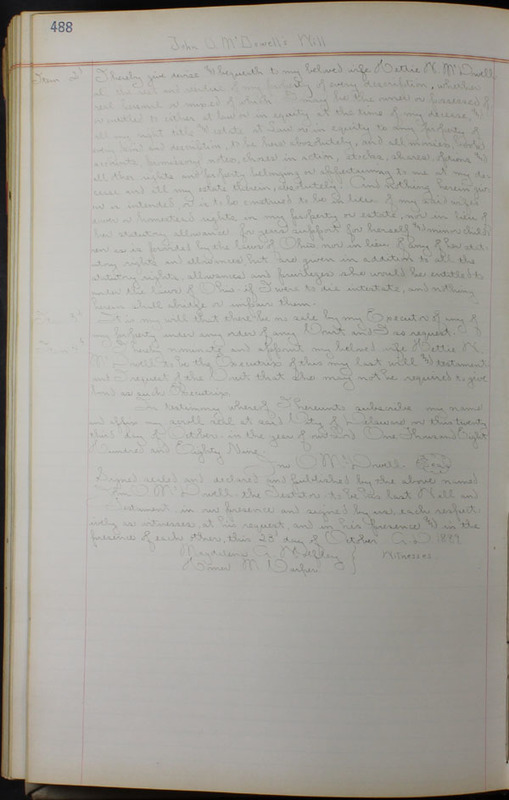 488
John O. McDowell's Will
Item 2d I hereby give devise & bequeath to my beloved wife Hettie N. McDowell
all the rest and residue of my property of every description, whether
real personal or mixed of which I may be the owner or possessed of
or entitled to either at law or in equity at the time of my decease &
all my right title & estate at law or in equity to any property of
every kind and description, to be hers absolutely, and all monies,
accounts, promissory notes, choses in action, stocks, shares, options &
all other rights and property belonging or appertaining to me at my de-
cease and all my estate therein, absolutely. And nothing herein giv-
en or intended is to be construed to be in lieu of my said wife's
dower or homestead rights in my property or estate, nor in lieu of
her statutory allowance for years support for herself & minor child-
ren as is provided by the laws of Ohio nor in lieu of any of her stat-
utory rights and allowances but are given in addition to all the
statutory rights, allowances and privileges she would be entitled to
under the laws of Ohio if I were to die intestate, and nothing
herein shall abridge or impair them.
It is my will that there be no sale by my Executor of any of
my property under any order of any Court and I so request.
Item 4th I hereby nominate and appoint my beloved wife Hettie N.
McDowell to be the Executrix of this my last will & testament
and I request of the Court that she may not be required to give
bond as such Executrix
In testimony whereof I hereunto subscribe my name
and affix my scroll seal at said City of on this twenty
third day of October in the year of our Lord One Thousand Eight
Hundred and Eighty Nine
Jno O McDowell (Seal)
Signed sealed and declared and published by the above named
Jno O McDowell the testator to be his last Will and
Testament in our presence and signed by us each respect-
ively as witnesses at his request, and in his presence & in the
presence of each other, this 23d day of October A.D. 1889
Magdalena G. } Witnesses
Homer M.